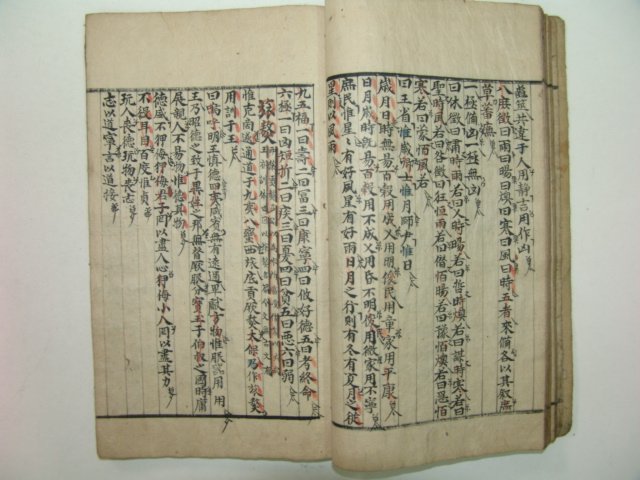 龜筮共違于人用靜吉用作凶
八庶徵曰雨曰暘曰燠曰寒曰風曰時五者來備各以其叙庶
草蕃廡
一極備凶一極無凶
曰休徵曰肅時雨若曰乂時暘若曰晢時燠若曰謀時寒若曰
聖時風若曰咎徵曰狂恒雨若曰僭恒暘若曰豫恒燠若曰急恒
寒若曰蒙恒風若
曰王省惟歲卿士惟月師尹惟日
歲月日時無易百穀用成乂用明俊民用章家用平康
日月歲時旣易百穀用不成乂用昏不明俊用微家用不寧
庶民惟星星有好風星有好雨日月之行則有冬有夏月之從
星則以風雨
九五福一曰壽二曰富三曰康寧四曰攸好德五曰考終命
六極一曰凶短折二曰疾三曰憂四曰貧五曰惡六曰弱
旅獒
惟克商遂通道于九夷八蠻西旅底貢厥獒太保乃作旅獒
用訓于王
曰嗚呼明王愼德四夷咸賓無有遠邇畢獻方物惟服食器用
王乃昭德之致于異姓之邦無替厥服分寶玉于伯叔之國時庸
展親人不易物惟德其物
德盛不狎侮狎侮君子罔以盡人心狎侮小人罔以盡其力
不役耳目百度惟貞
玩人喪德玩物喪志
志以道寧言以道接